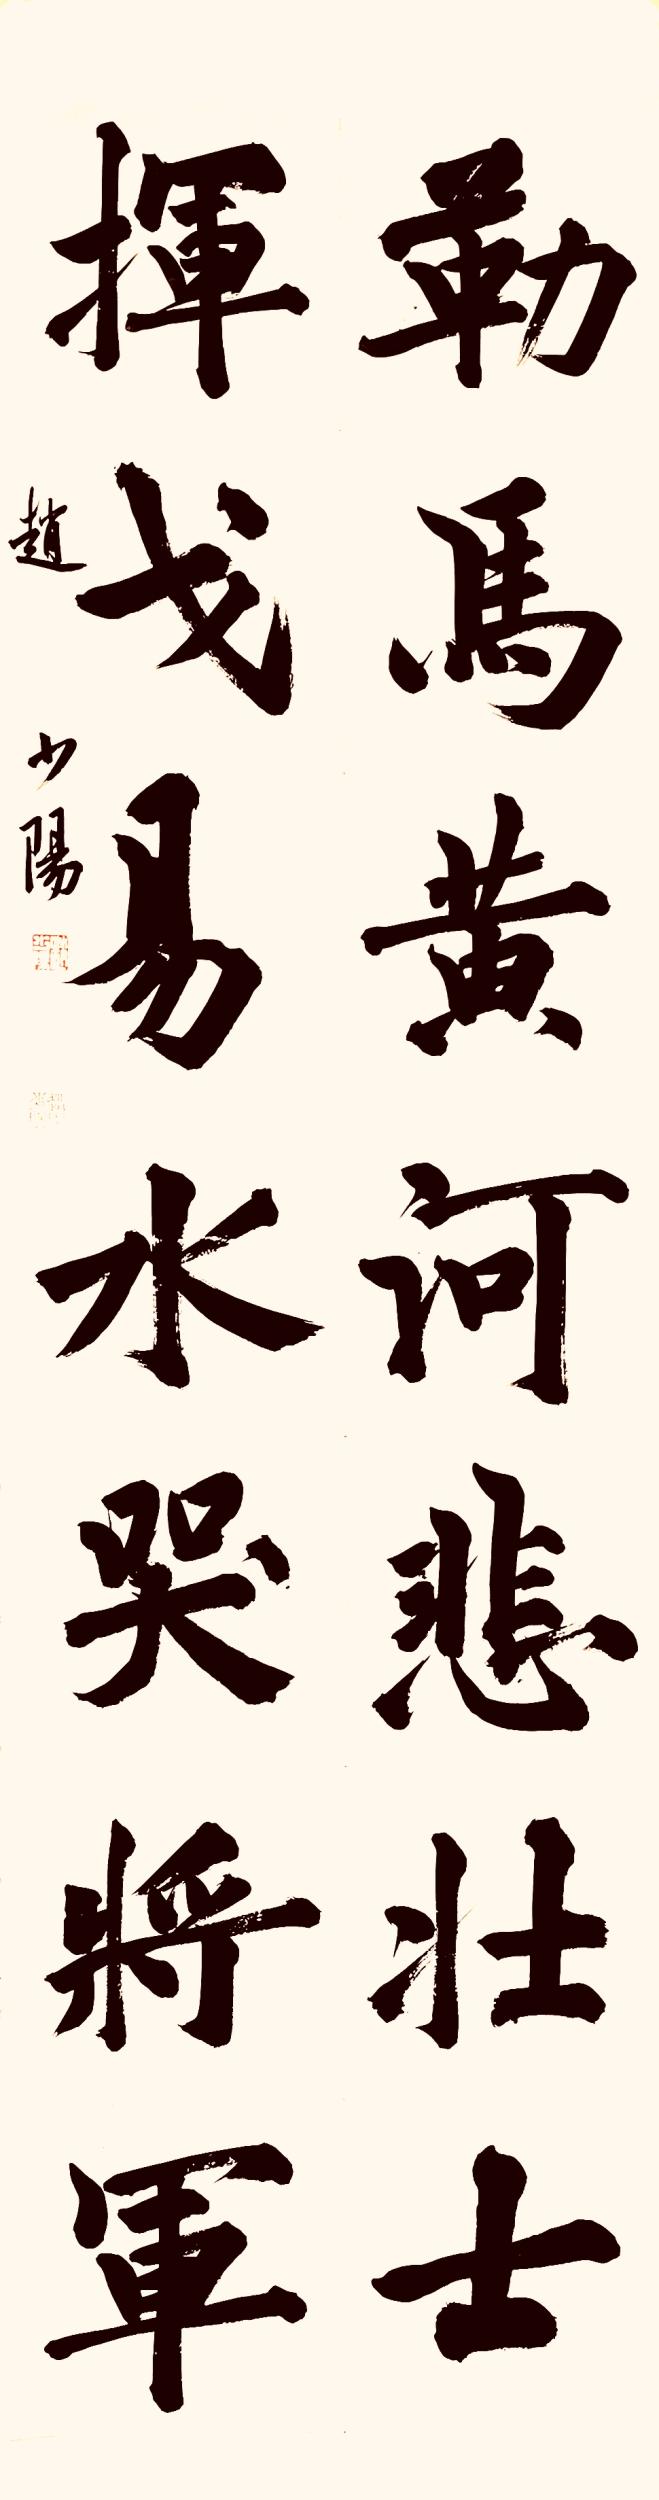 勒馬黄河悲壯士
揮戈易水哭將軍
趙少昂